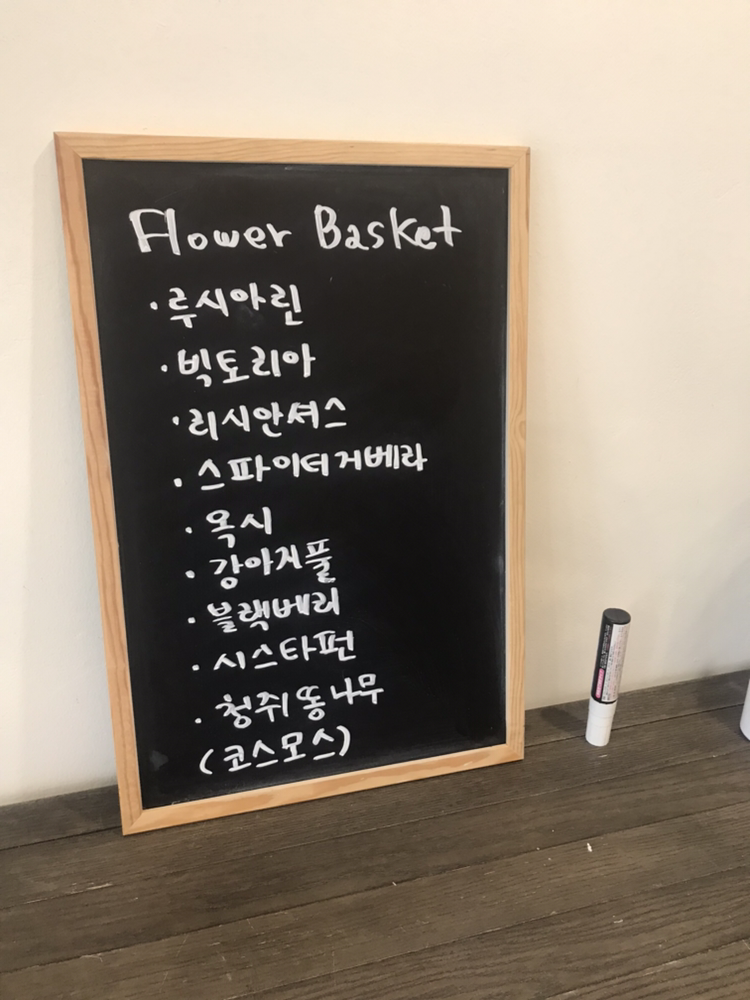 Flower Basket
·루시아린
·빅토리아
·리시안셔스
·스파이더거베라
·옥시
·강아지풀
·블랙베리
·시스타펀
·청쥐똥나무
(코스모스)